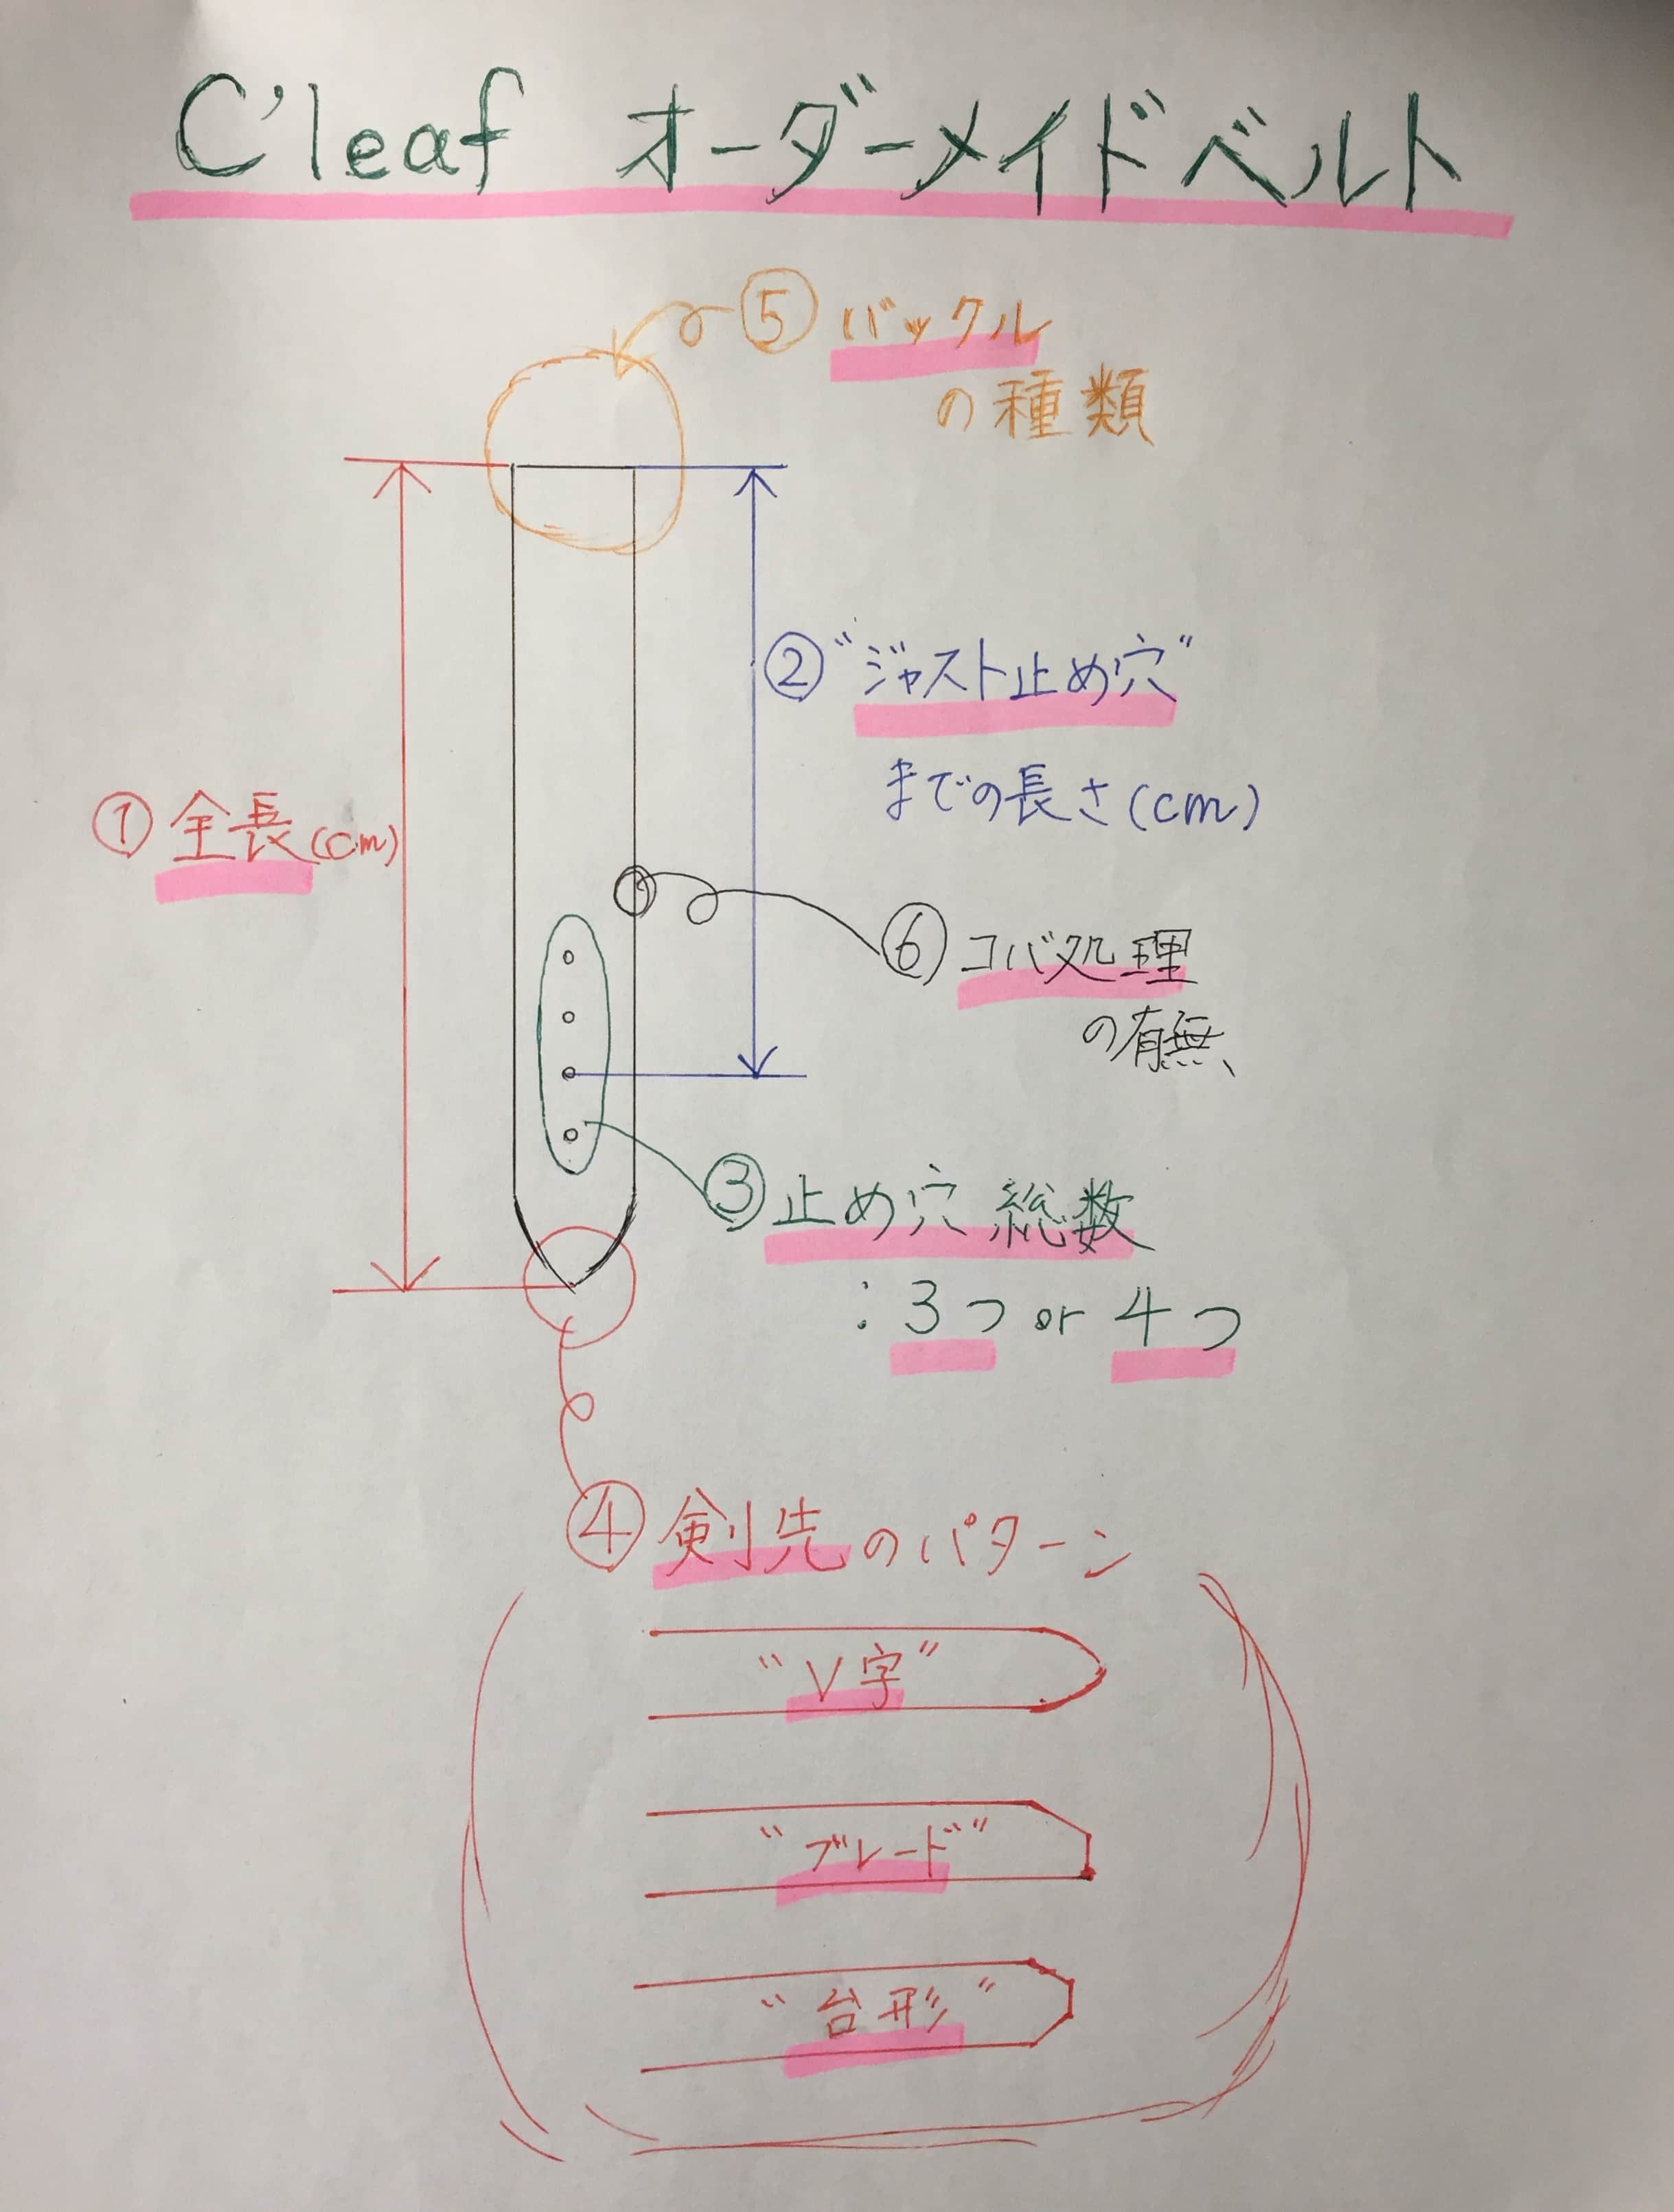 C'leaf オーダーメイドベルト
⑤ バックル
の種類
② “ジャスト止め穴”
までの長さ(cm)
① 全長(cm)
⑥ コバ処理
の有無
③ 止め穴総数
: 3つ or 4つ
④ 剣先のパターン
“V字”
“ブレード”
“台形”